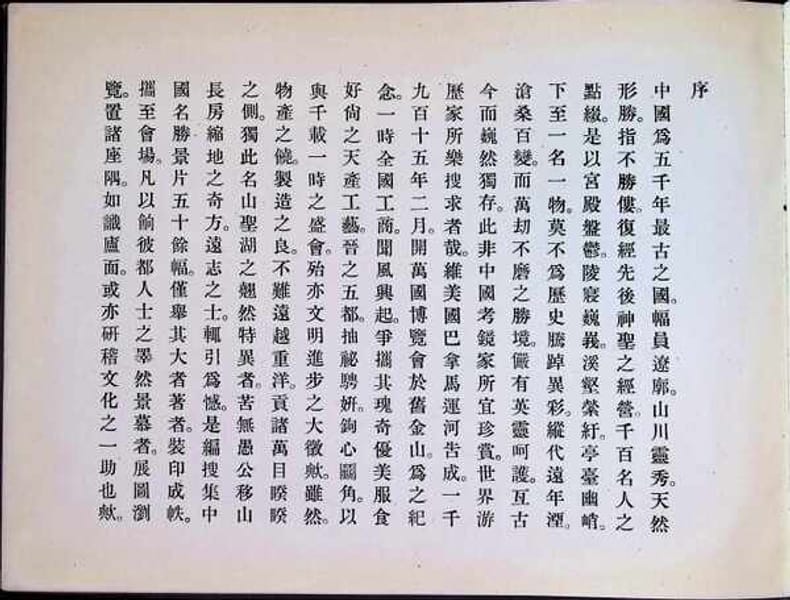 序
中國爲五千年最古之國。幅員遼廓。山川靈秀。天然
形勝。指不勝僂。復經先後神聖之經營。千百名人之
點綴。是以宮殿盤鬱。陵寢巍峩。溪壑縈紆。亭臺幽峭。
下至一名一物。莫不爲歷史騰踔異彩。縱代遠年湮。
滄桑百變。而萬刧不磨之勝境。儼有英靈呵護。亙古
今而巍然獨存。此非中國考鏡家所宜珍賞。世界游
歷家所樂搜求者哉。維美國巴拿馬運河告成。一千
九百十五年二月。開萬國博覽會於舊金山。爲之紀
念。一時全國工商。聞風興起。爭攜其瑰奇優美服食
好尙之天產工藝。晉之五都。抽祕騁妍。鉤心鬭角。以
與千載一時之盛會。殆亦文明進步之大徵歟。雖然。
物產之饒。製造之良。不難遠越重洋。貢諸萬目睽睽
之側。獨此名山聖湖之翹然特異者。苦無愚公移山
長房縮地之奇方。遠志之士。輒引爲憾。是編搜集中
國名勝景片五十餘幅。僅舉其大者著者。裝印成帙。
攜至會場。凡以餉彼都人士之睪然景慕者。展圖瀏
覽。置諸座隅。如識廬面。或亦研稽文化之一助也歟。